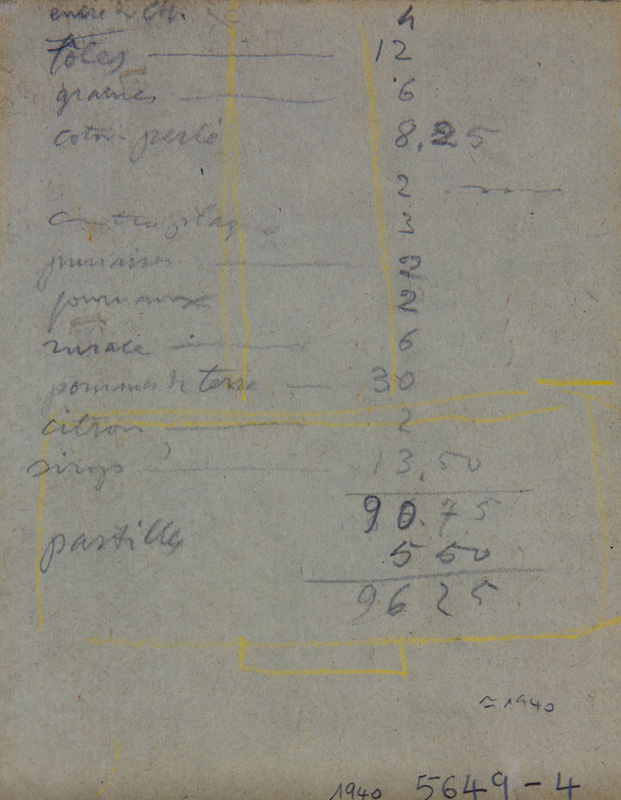 encre de 4
Tôles 12
graines 6
coton perlé 8,25
2
contre plaq 3
punaises 2
journaux 2
6
pommes de terre 30
citron 2
sirop 13,50
90.75
pastilles 5 50
96 25
≃ 1940
1940 5649-4